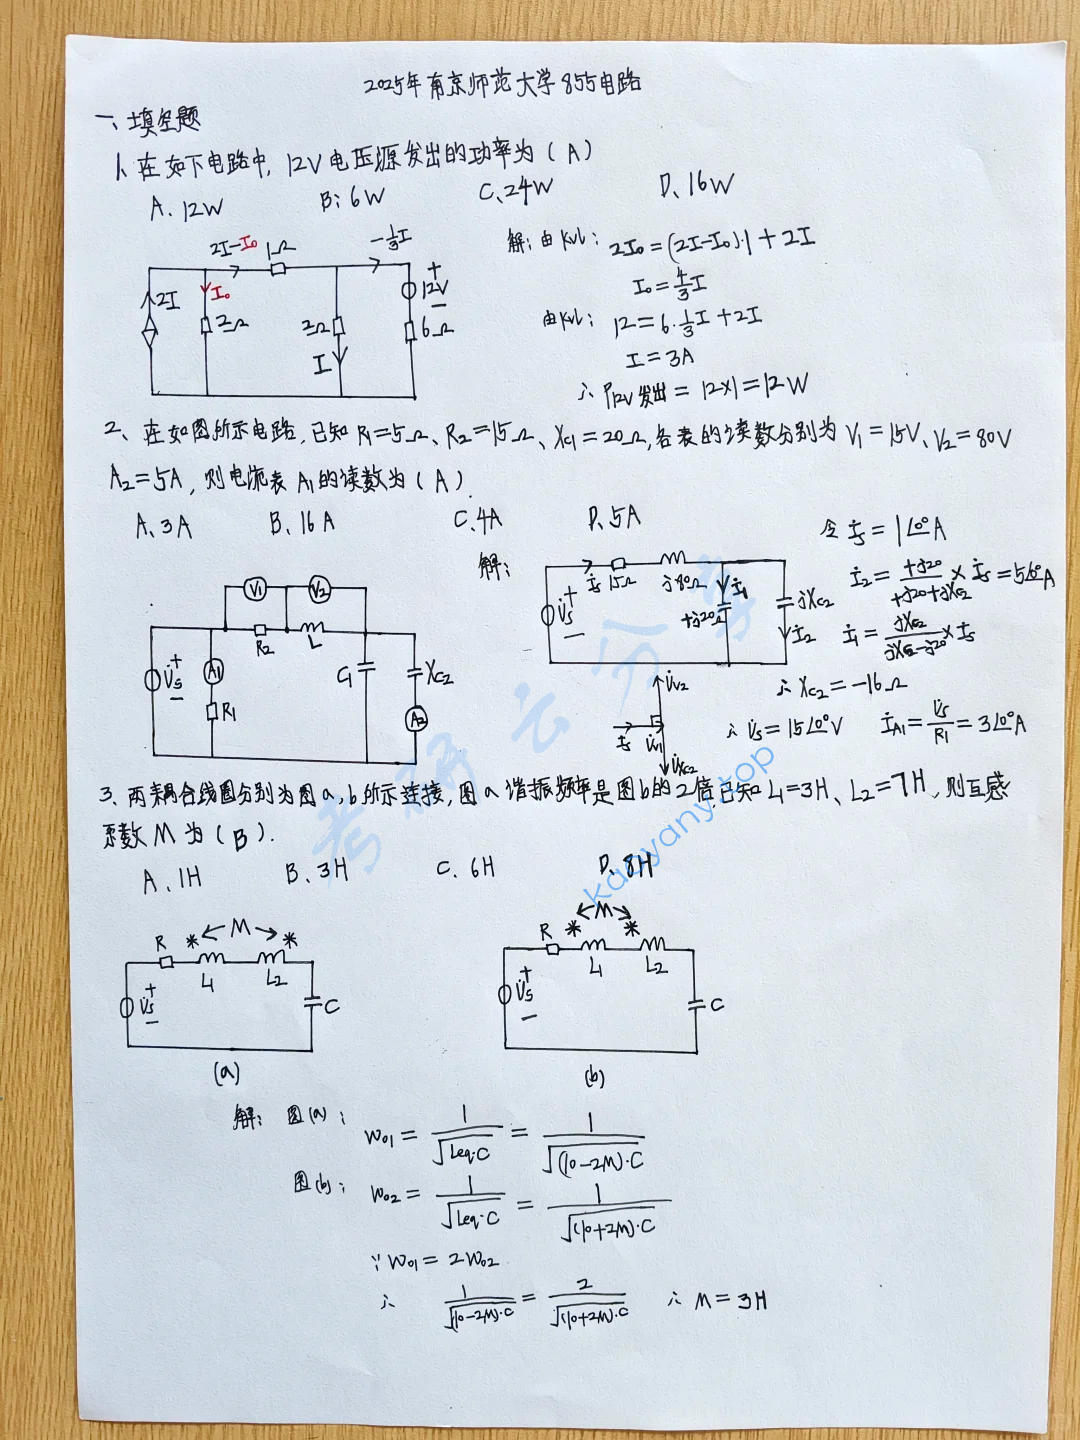 2025年南京师范大学855电路
一、填空题
1、在如下电路中，12V电压源发出的功率为（A）
A. 12W B: 6W C、24W D、16W
2I-I₀ 1Ω -⅓I
2I I₀ 2Ω 2Ω I + 12V − 6Ω
解：由KVL： 2I₀=(2I-I₀)·1+2I
I₀=4/3 I
由KVL： 12=6·⅓I+2I
I=3A
∴P12V发出=12×1=12W
2、在如图所示电路，已知R₁=5Ω、R₂=15Ω、Xc₁=20Ω，各表的读数分别为V₁=15V、V₂=80V
A₂=5A，则电流表A₁的读数为（A）.
A、3A B、16A C、4A D、5A
V1 V2
R₂ L
+ V̇s − A1 R1 C₁ Xc2 A2
解：
İs 15Ω j80Ω İ₁
+ V̇s − +j20Ω jXc2 İ₂
令İs=1∠0°A
İ₂=+j20/(+j20+jXc2)×İs=5∠0°A
İ₁=jXc2/(jXc2-j20)×İs
∴Xc2=-16Ω
∴V̇s=15∠0°V İA1=V̇s/R1=3∠0°A
V̇v2
İs V̇v1
V̇xc2
3、两耦合线圈分别为图a,b所示连接，图a谐振频率是图b的2倍，已知L₁=3H、L₂=7H，则互感
系数M为（B）.
A、1H B、3H C. 6H D、8H
R * M * L₁ L₂
+ V̇s − C
(a)
R * M * L₁ L₂
+ V̇s − C
(b)
解：图(a)： W01=1/√(Leq·C)=1/√((10-2M)·C)
图(b)： W02=1/√(Leq·C)=1/√((10+2M)·C)
∵W01=2W02
∴ 1/√((10-2M)·C)=2/√((10+2M)·C) ∴M=3H
考研云分享
kaoyany.top